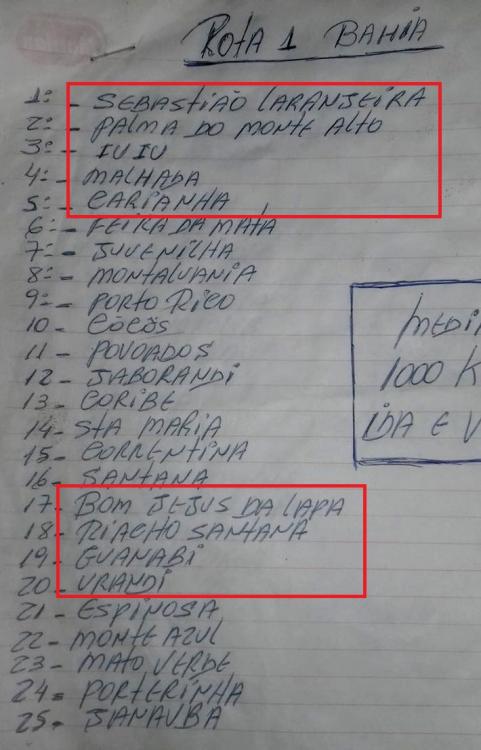 ROTA 1 BAHIA
1º - SEBASTIÃO LARANJEIRA
2º - PALMA DO MONTE ALTO
3º - IUIU
4º - MALHADA
5º - CARIANHA
6º - FEIRA DA MATA
7º - JUVENILHA
8º - MONTALVANIA
9º - PORTO RICO
10 - CÔCÔS
11 - POVOADOS
12 - JABORANDI
13 - CORIBE
14 - STA MARIA
15 - CORRENTINA
16 - SANTANA
17 - BOM JEJUS DA LAPA
18 - RIACHO SANTANA
19 - GUANABI
20 - URANDI
21 - ESPINOSA
22 - MONTE AZUL
23 - MATO VERDE
24 - PORTERINHA
25 - JANAUBA
MEDI
1000 K
IDA E V